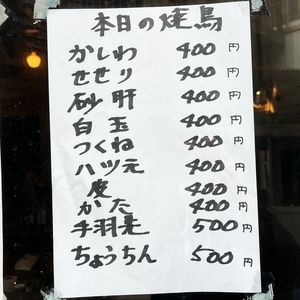 本日の焼鳥
かしわ 400円
せせり 400円
砂肝 400円
白玉 400円
つくね 400円
ハツ元 400円
皮 400円
かた 400円
手羽先 500円
ちょうちん 500円